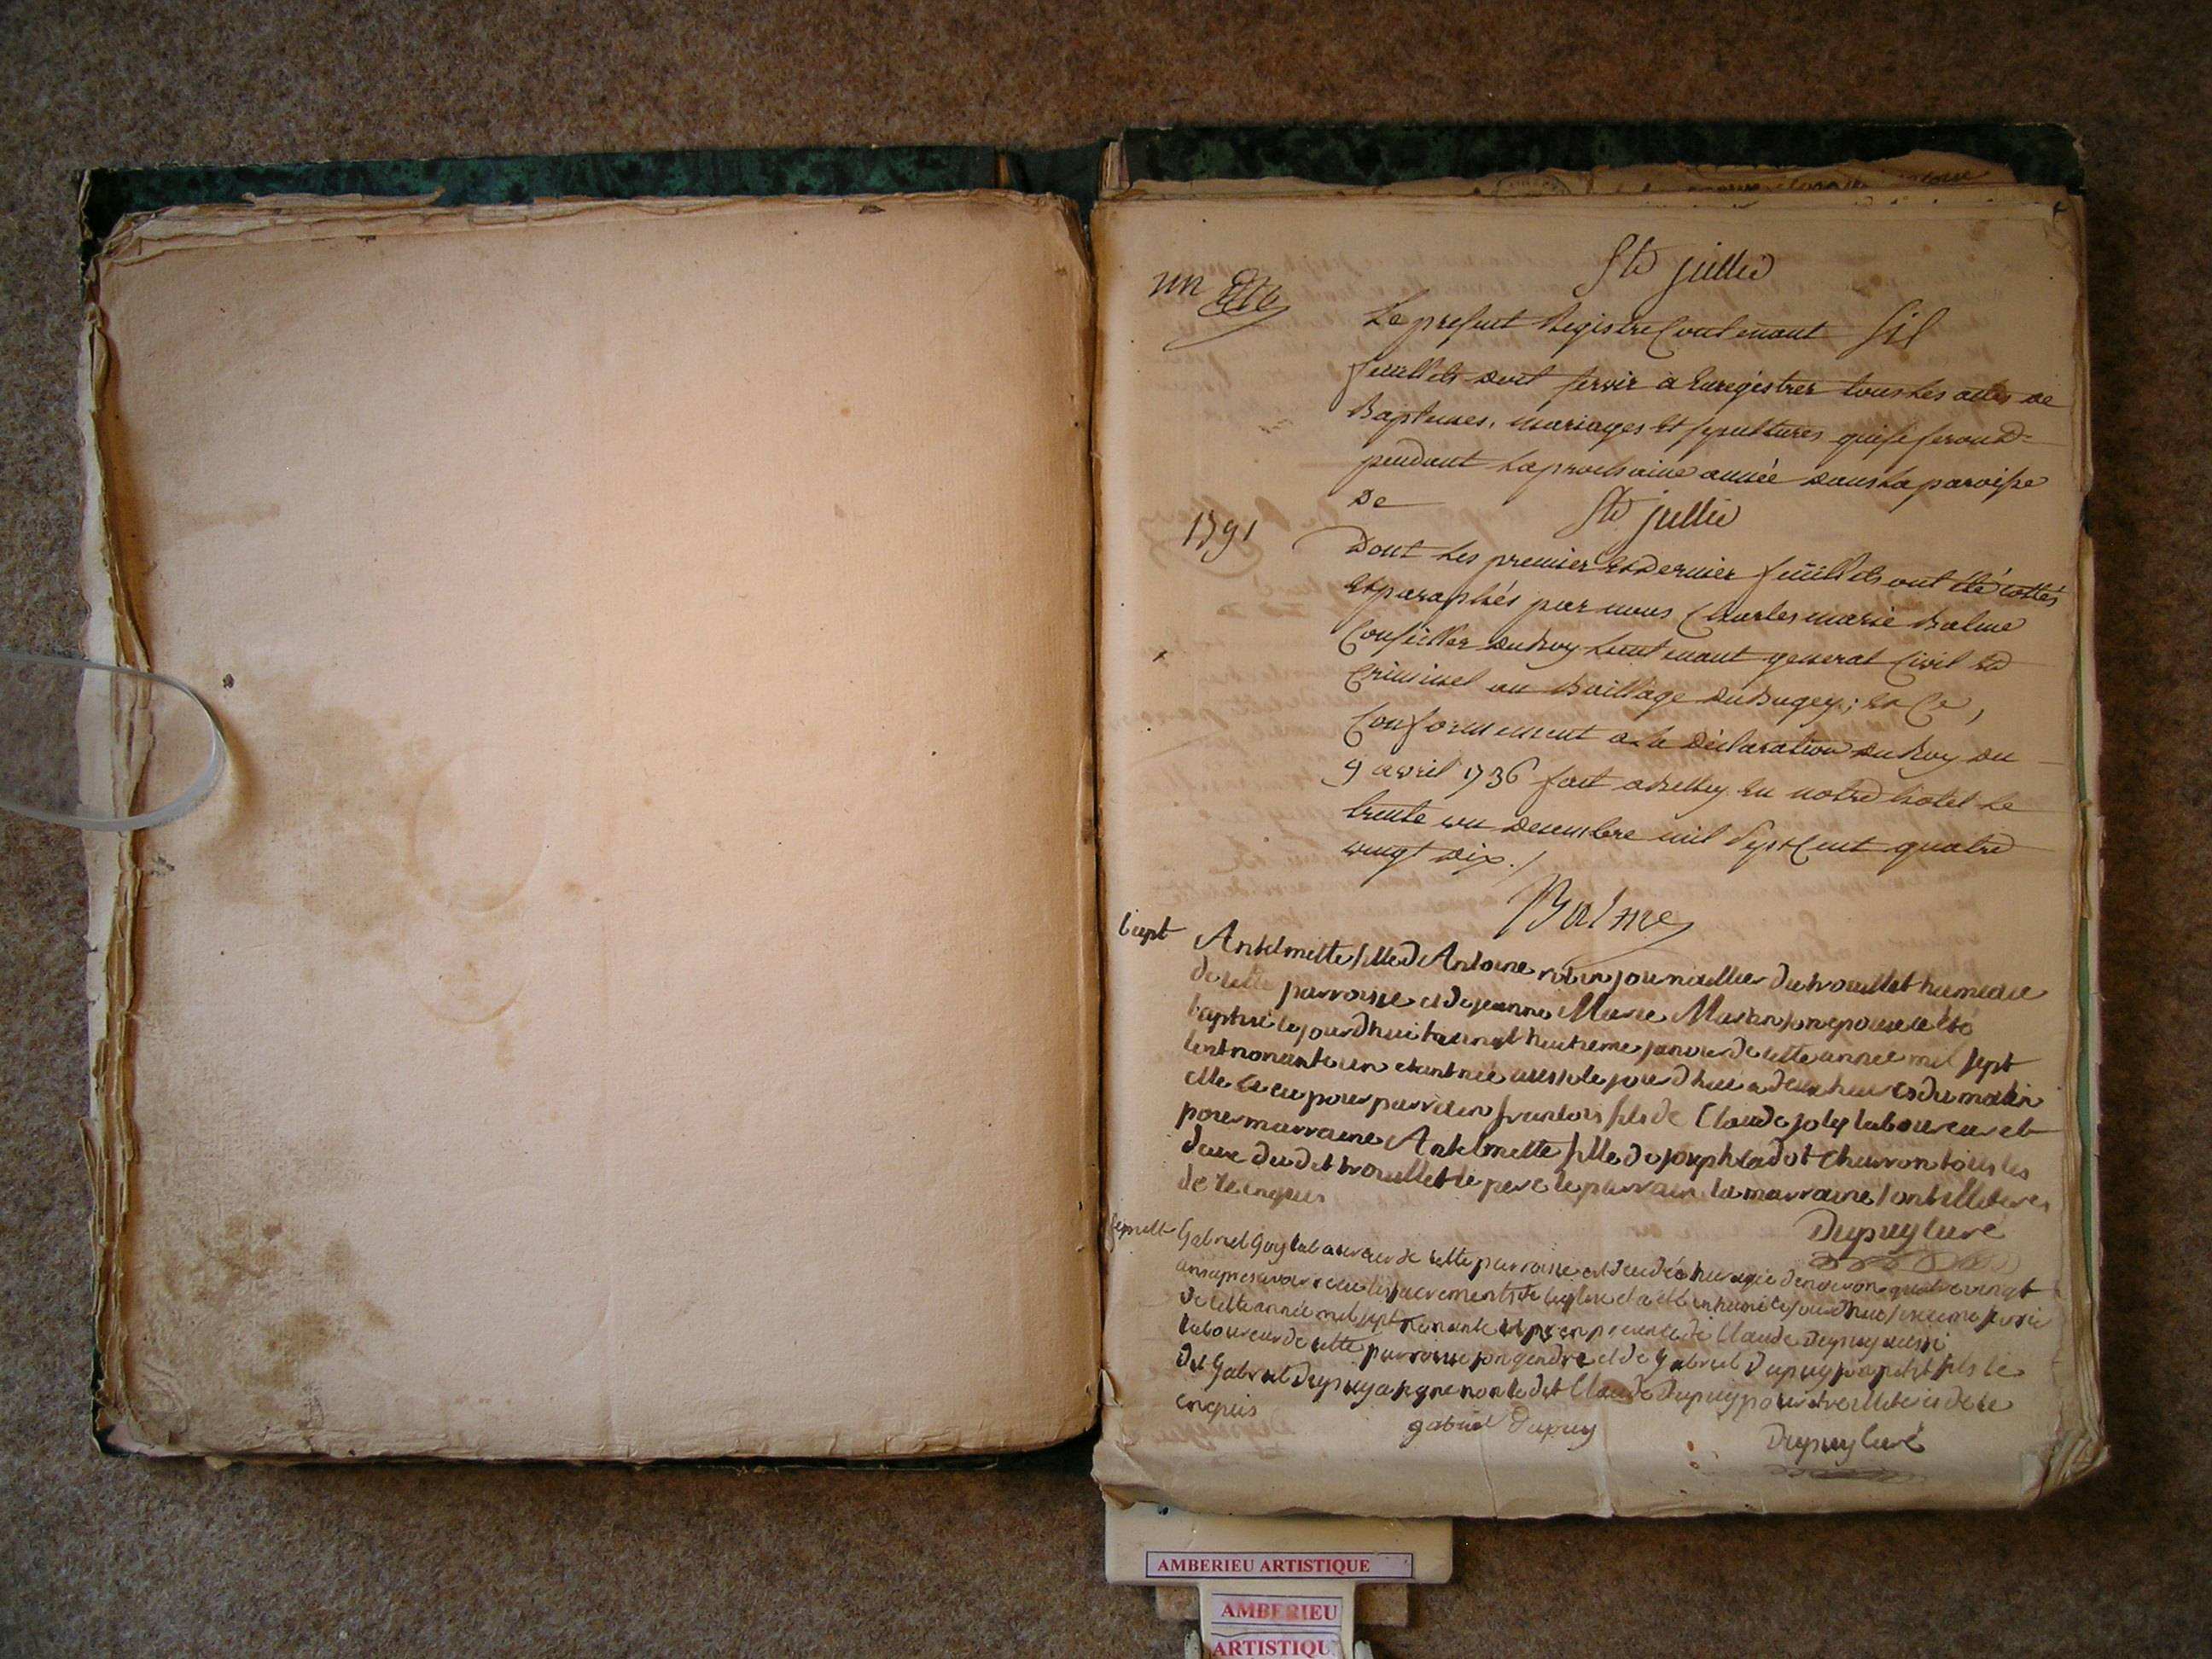 Ste jullie
un
Le present Registre Contenant six
feuillets doit servir a Enregistrer tous les actes de
Baptemes, mariages et sepultures qui se feront
pendant la prochaine année dans la paroisse
De Ste jullie
1791
Dont les premier et Dernier feuillets ont été cottés
et paraphés par nous Charles marie Balme
Conseiller du Roy Lieutenant general Civil et
Criminel au Baillage du Bugey; et Ce,
Conformement a la Déclaration du Roy du
9 avril 1736 fait a Belley en notre hotel le
trente un decembre mil sept Cent quatre
vingt dix ./
Balme
bapt Antelmette fille de Antoine journallier du trouillet hameau
de cette parroisse et de jeanne Marie Martin son epouse a été
baptisé le jourdhui huitieme janvier de cette année mil sept
cent nonante un etant née aussi le jour dhui a deux heures du matin
elle a eu pour parrain francois fils de Claude joly laboureur et
pour marraine Antelmette fille de joseph cadot charron tous les
deux du dit trouillet le pere le parrain la marraine sont illiteres
de ce enquis
Dupuy curé
sepult Gabriel Guy laboureur de cette parroisse est decedé hier agé denviron quatre vingt
ans apres avoir recu les sacrements de leglise et a été inhumé le jourdhui janvier
de cette année mil sept nonante un en presence de Claude Dupuy aussi
laboureur de cette parroisse son gendre et de Gabriel Dupuy son petit fils le
dit Gabriel Dupuy a signe non le dit Claude Dupuy pour etre illitere de ce
enquis
gabriel Dupuy
Dupuy curé
AMBERIEU ARTISTIQUE
AMBERIEU
ARTISTIQU